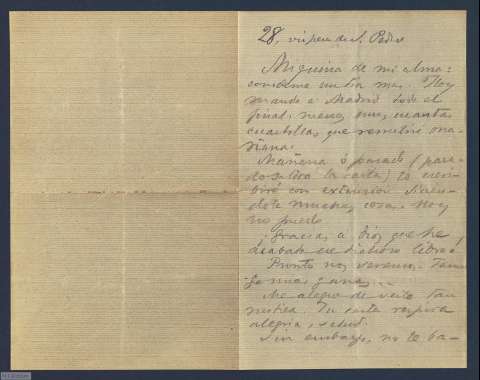 28, víspera de S. Pedro
Miquina de mi alma:
un día mas. Hoy
mando a Madrid todo el
final menos unas cuantas
cuartillas, que remitiré ma-
ñana.
Mañana ó pasado (
la carta) te escri-
biré con extension
dote muchas cosas. Hoy
no puedo.
Gracias a Dios que he
acabado ese diablo libro!
Pronto nos veremos. Tengo
ganas
Me alegro de verte tan
mística. Tu carta respira
alegría, salud.
Sin embargo, no te ba-